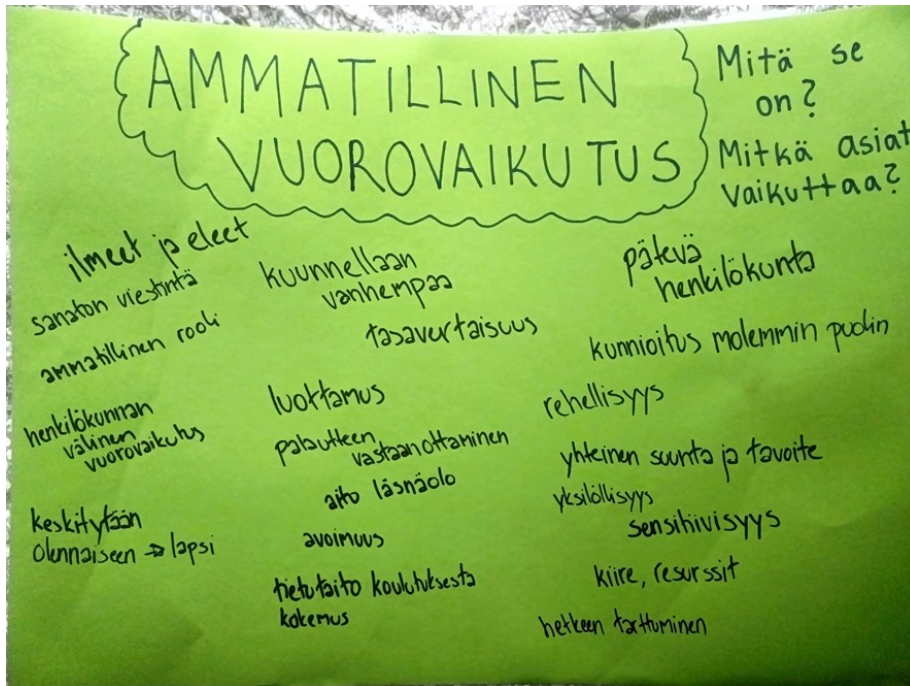 AMMATILLINEN
VUOROVAIKUTUS
Mitä se
on?
Mitkä asiat
vaikuttaa?
ilmeet ja eleet
sanaton viestintä
ammatillinen rooli
henkilökunnan
välinen
vuorovaikutus
keskitytään
olennaiseen → lapsi
kuunnellaan
vanhempaa
tasavertaisuus
luottamus
palautteen
vastaanottaminen
aito läsnäolo
avoimuus
tietutaito koulutuksesta
kokemus
pätevä
henkilökunta
kunnioitus molemmin puolin
rehellisyys
yhteinen suunta ja tavoite
yksilöllisyys
sensitiivisyys
kiire, resurssit
hetkeen tarttuminen